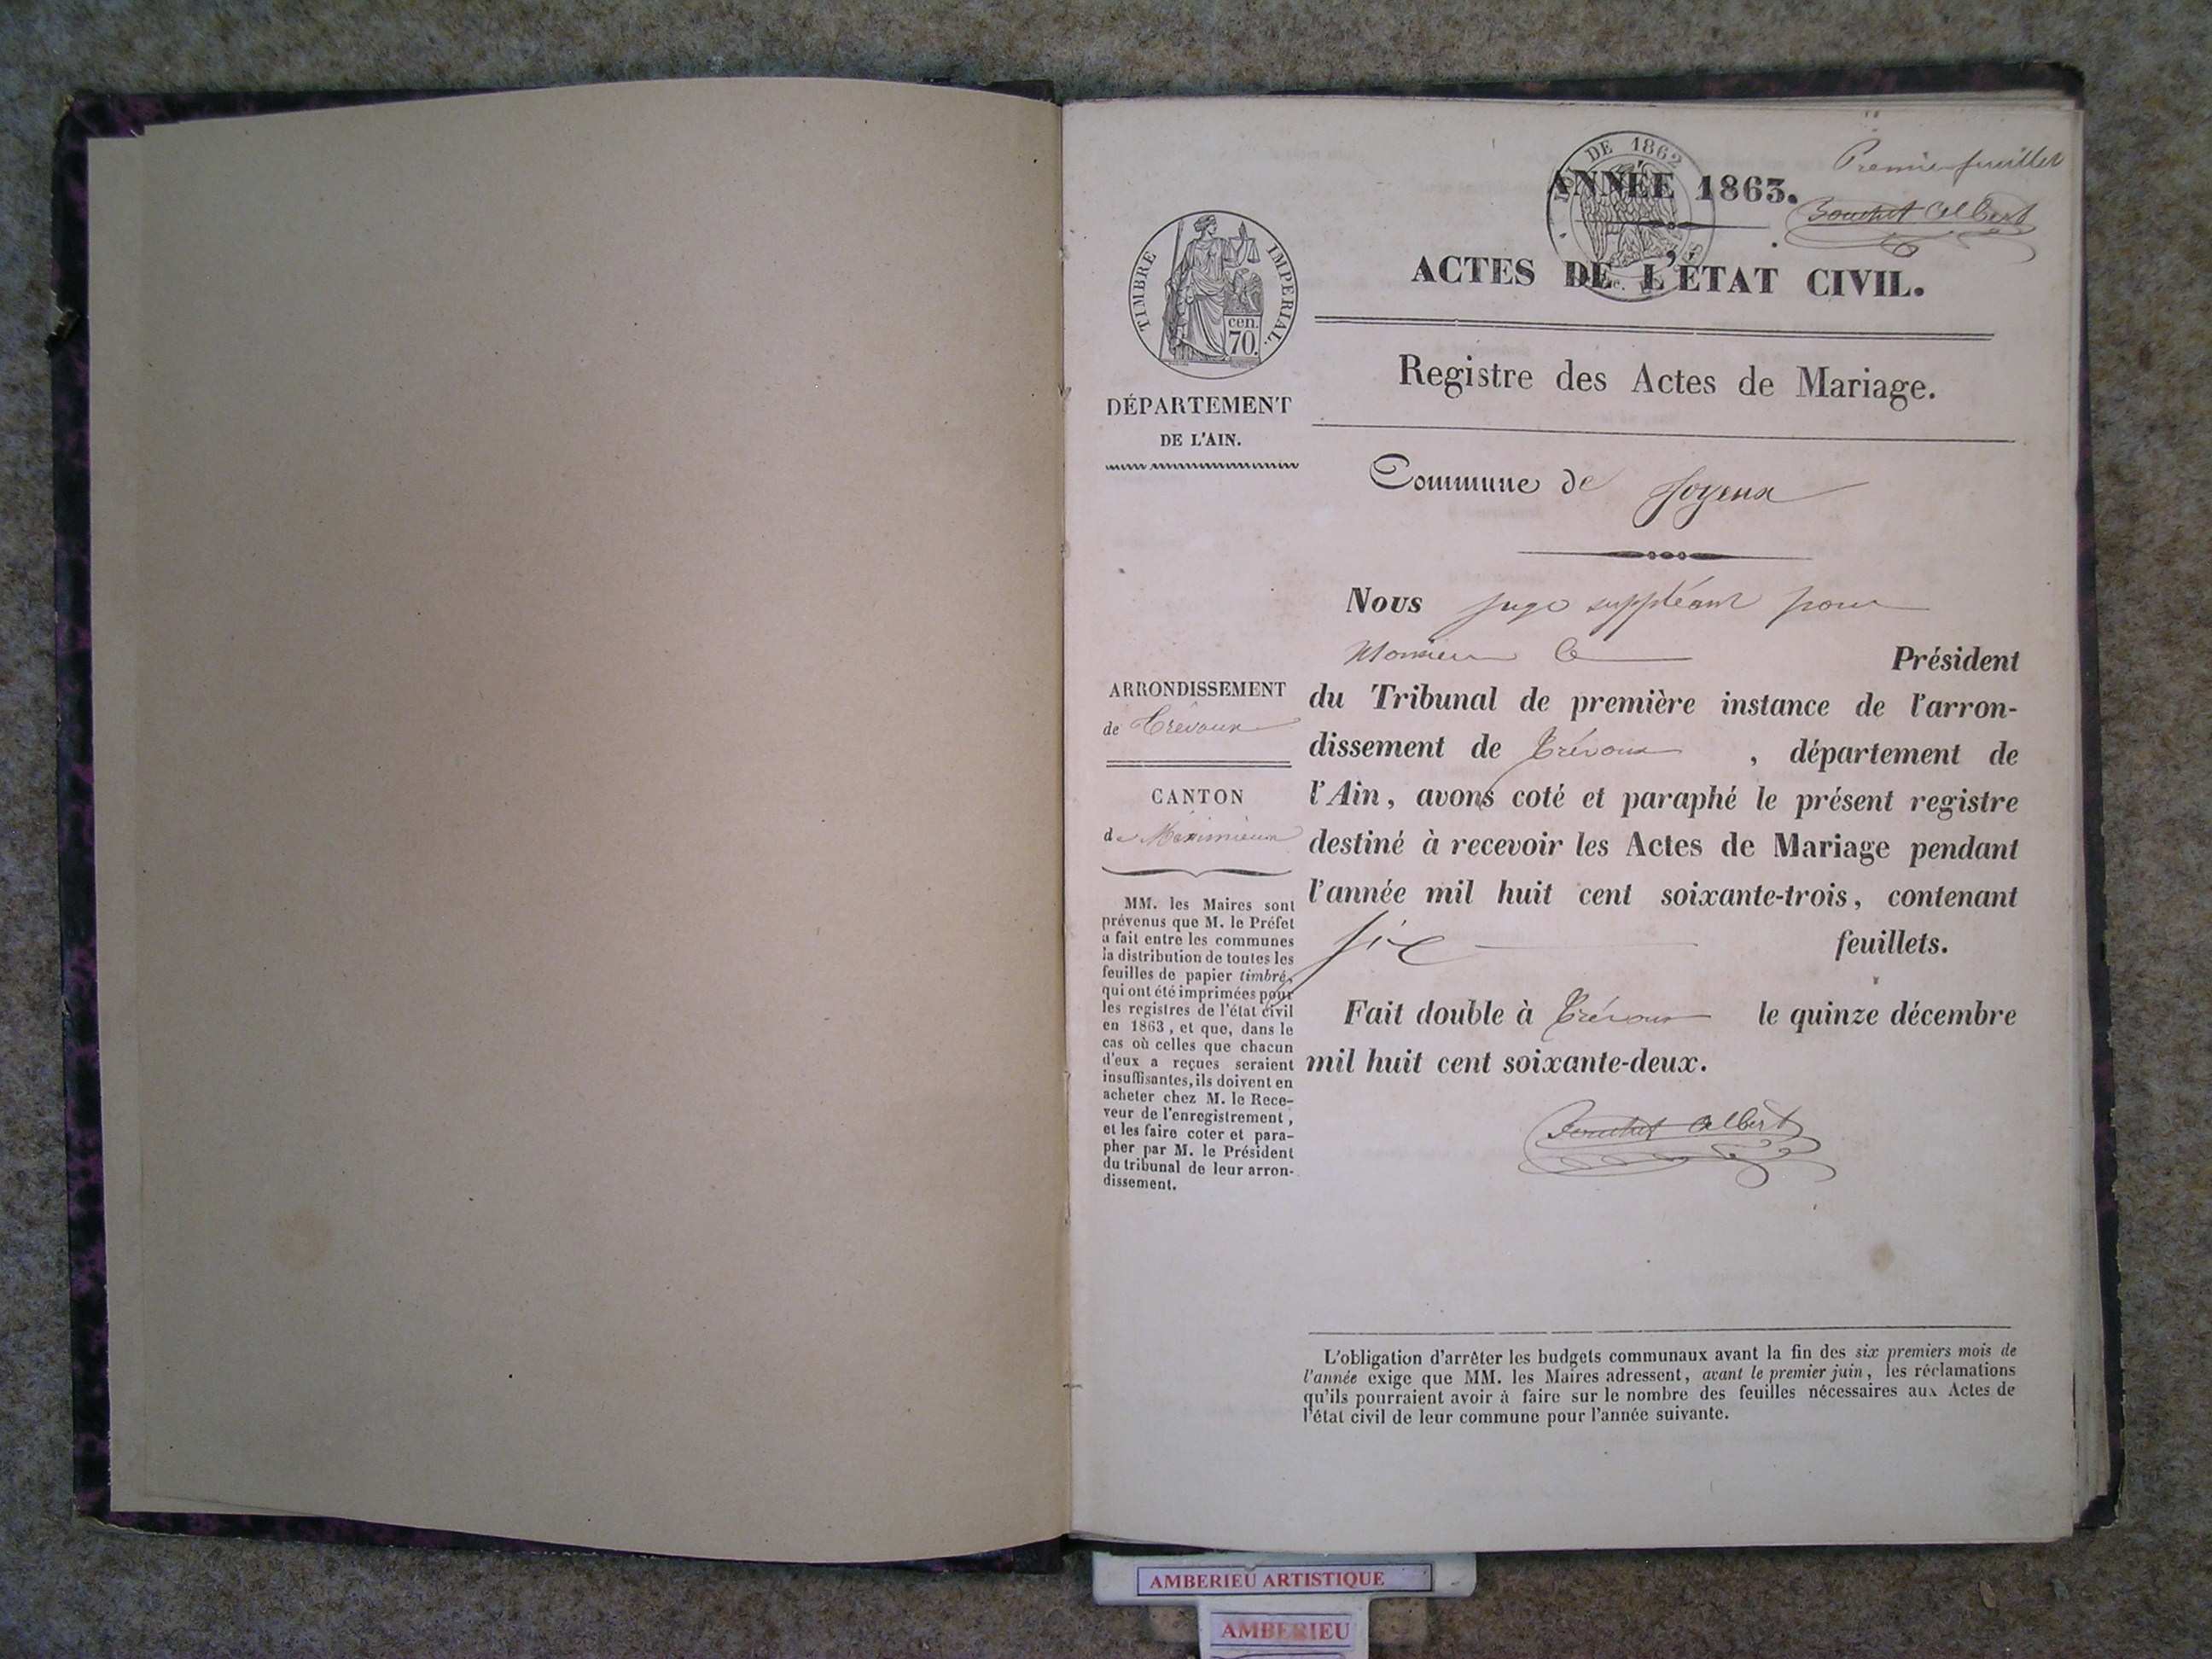 Premier feuillet
LOI DE 1862
ANNÉE 1863.
Bouchet Albert
TIMBRE IMPERIAL.
cen.
70.
ACTES DE L'ÉTAT CIVIL.
Registre des Actes de Mariage.
DÉPARTEMENT
DE L'AIN.
Commune de Joyeux
Nous juge suppléant pour
Monsieur le Président
du Tribunal de première instance de l'arron-
dissement de Trévoux , département de
l'Ain, avons coté et paraphé le présent registre
destiné à recevoir les Actes de Mariage pendant
l'année mil huit cent soixante-trois, contenant
six feuillets.
Fait double à Trévoux le quinze décembre
mil huit cent soixante-deux.
Bouchet Albert
ARRONDISSEMENT
de Trévoux
CANTON
de Meximieux
MM. les Maires sont
prévenus que M. le Préfet
a fait entre les communes
la distribution de toutes les
feuilles de papier timbré,
qui ont été imprimées pour
les registres de l'état civil
en 1863, et que, dans le
cas où celles que chacun
d'eux a reçues seraient
insuffisantes, ils doivent en
acheter chez M. le Rece-
veur de l'enregistrement,
et les faire coter et para-
pher par M. le Président
du tribunal de leur arron-
dissement.
L'obligation d'arrêter les budgets communaux avant la fin des six premiers mois de
l'année exige que MM. les Maires adressent, avant le premier juin, les réclamations
qu'ils pourraient avoir à faire sur le nombre des feuilles nécessaires aux Actes de
l'état civil de leur commune pour l'année suivante.
AMBERIEU ARTISTIQUE
AMBERIEU